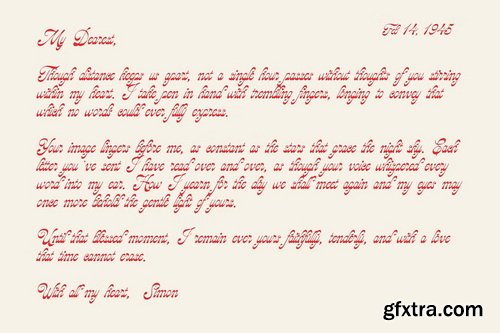 Feb 14, 1945
My Dearest,
Though distance keeps us apart, not a single hour passes without thoughts of you stirring
within my heart. I take pen in hand with trembling fingers, longing to convey that
which no words could ever fully express.
Your image lingers before me, as constant as the stars that grace the night sky. Each
letter you've sent I have read over and over, as though your voice whispered every
word into my ear. How I yearn for the day we shall meet again and my eyes may
once more behold the gentle light of yours.
Until that blessed moment, I remain ever yours faithfully, tenderly, and with a love
that time cannot erase.
With all my heart, Simon
gfxtra.com